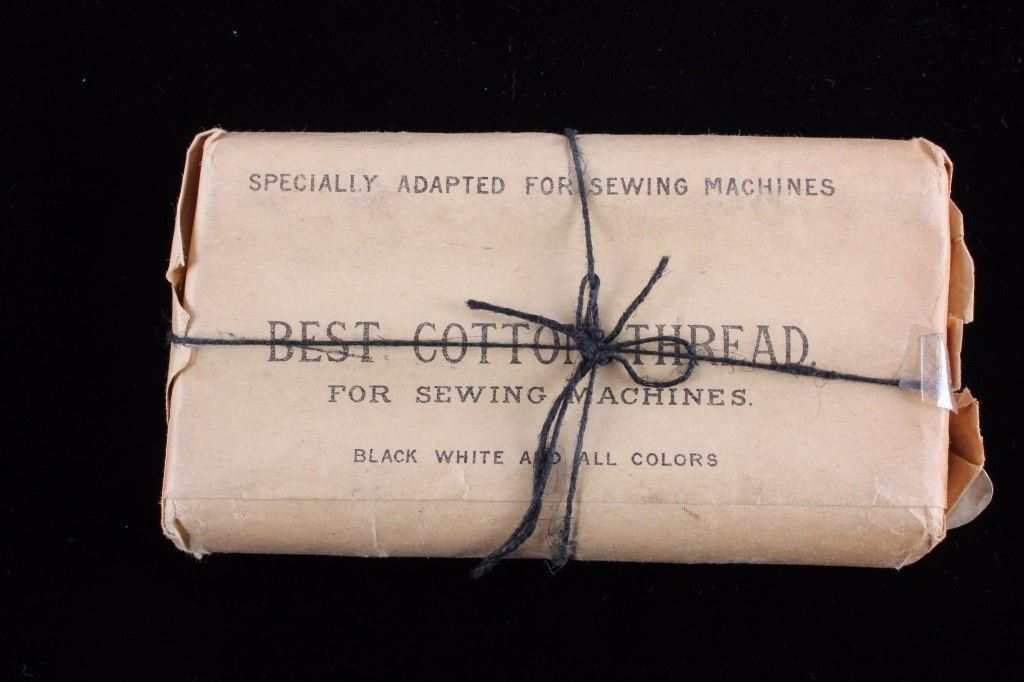 SPECIALLY ADAPTED FOR SEWING MACHINES
BEST COTTON THREAD.
FOR SEWING MACHINES.
BLACK WHITE AND ALL COLORS